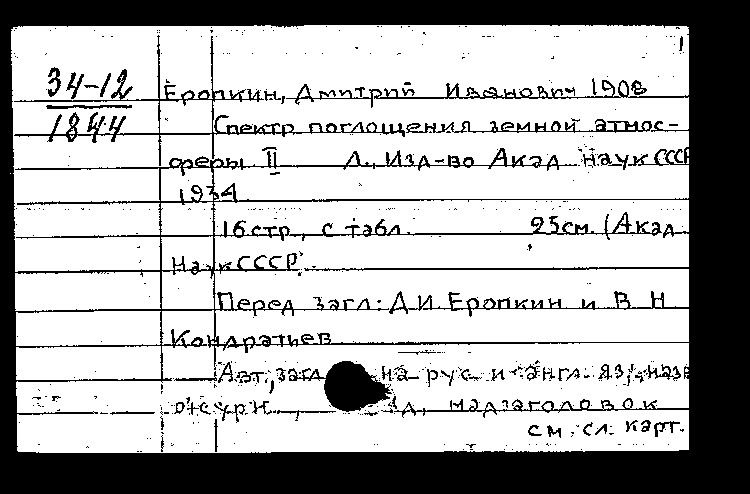 1
34-12
1844
Еропкин, Дмитрий Иванович 1908
Спектр поглощения земной атмос-
феры II Л., Изд-во Акад наук СССР
1934
16 стр., с табл. 25 см. (Акад
Наук СССР.
Перед загл: Д.И. Еропкин и В Н
Кондратьев
Авт., загл на рус и англ. яз., назв
журн. , надзаголовок
см. сл. карт.